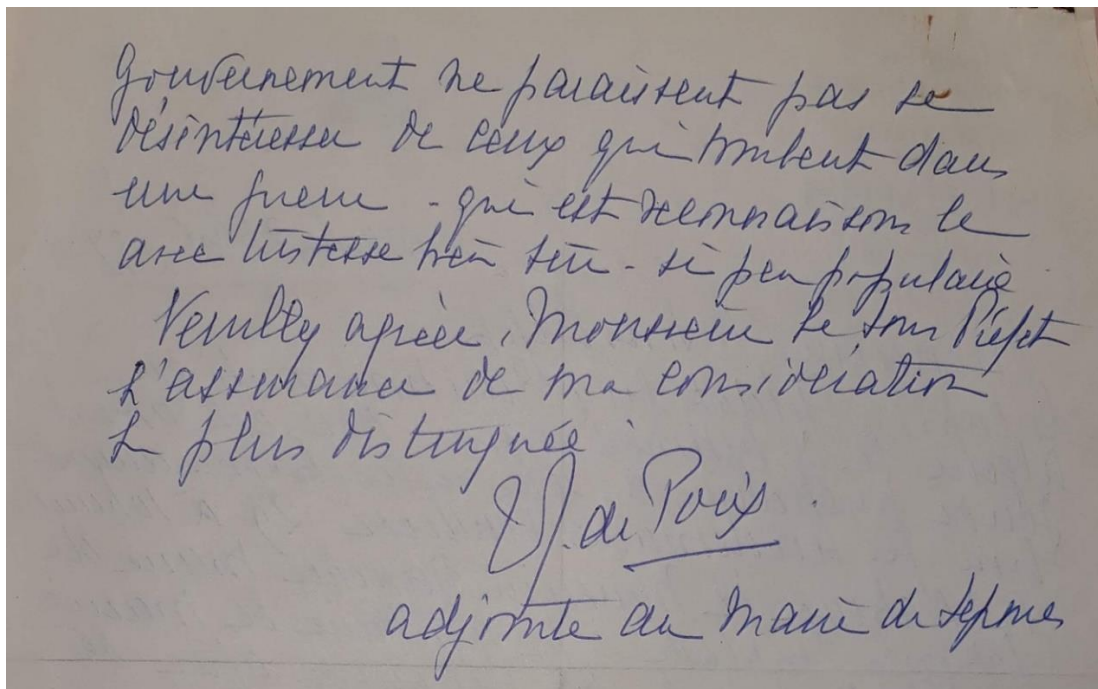 Gouvernement ne paraissent pas se
désintéresser de ceux qui tombent dans
une guerre - qui est reconnaissons le
avec tristesse bien sûr - si peu populaire
Veuillez agréer, Monsieur le Sous Préfet
L'assurance de ma considération
La plus distinguée.
de Poix
adjointe au Maire de Sepmes